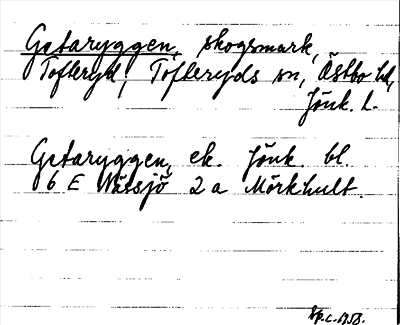 Getaryggen, skogsmark,
Tofteryd, Tofteryds sn, Östbo hd,
Jönk. l.
Getaryggen, ek. Jönk. bl.
6 E Nässjö 2 a Mörkhult.
c. 1958.